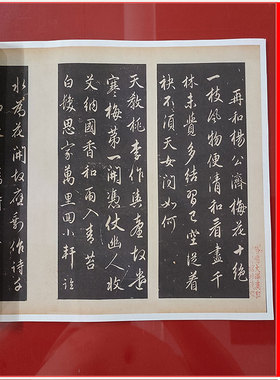 再和楊公濟梅花十絕
一枝風物便清和看盡千
林未覺多結習已空從着
袂不須天女問如何
天教桃李作輿臺故遣
寒梅第一開憑仗幽人收
艾納國香和雨入青苔
白髮思家萬里回小軒臨
水為花開故應剩作詩千